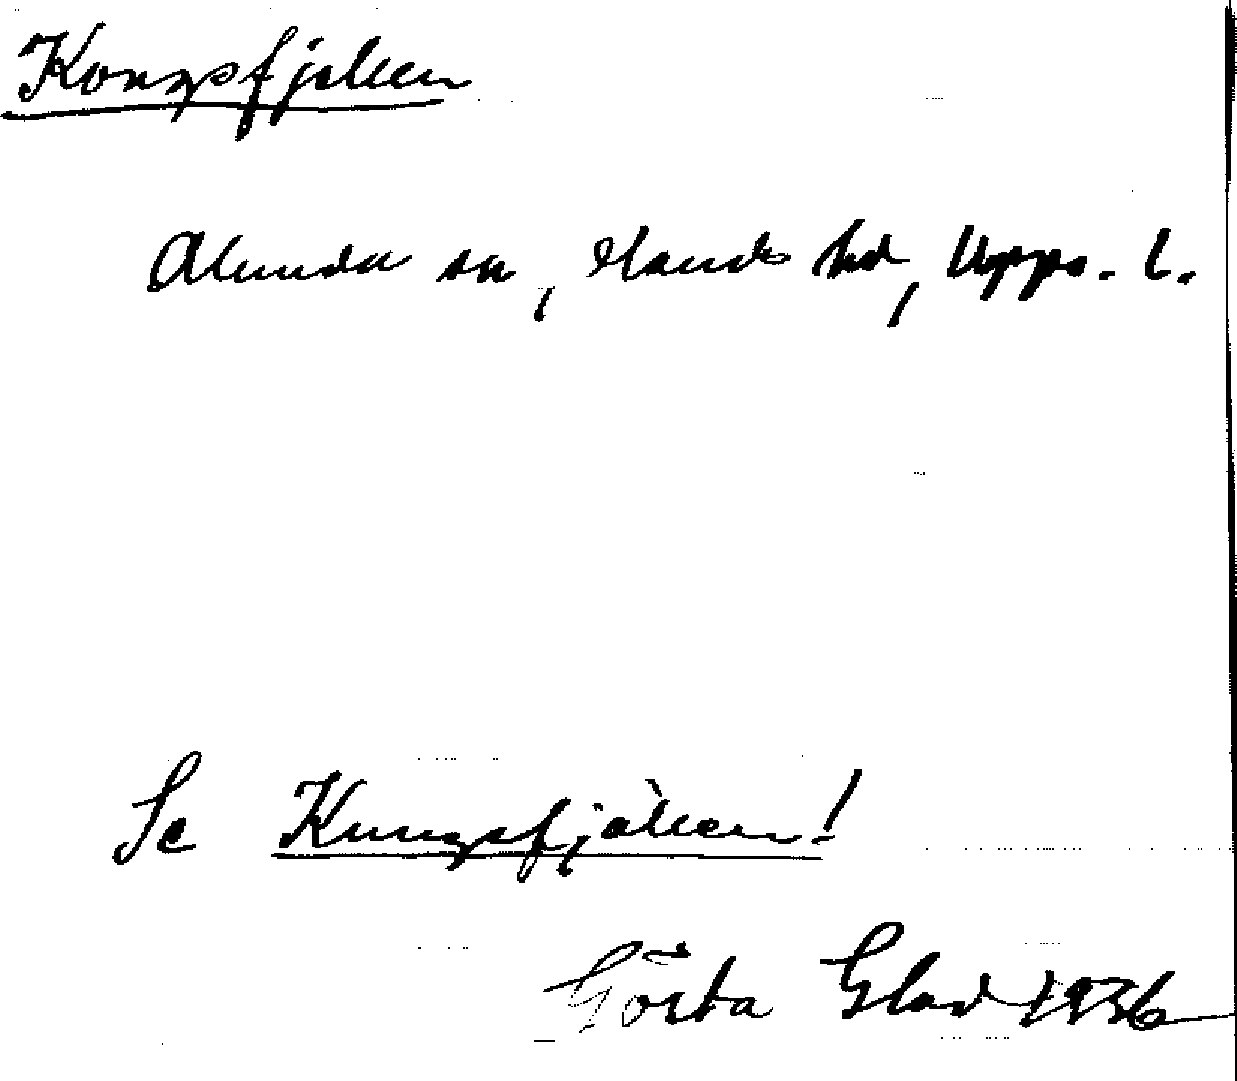 Kongsfjellen
Alunda sn, Olands hd, Upps. l.
Se Kungsfjällen!
Gösta Glad 1936